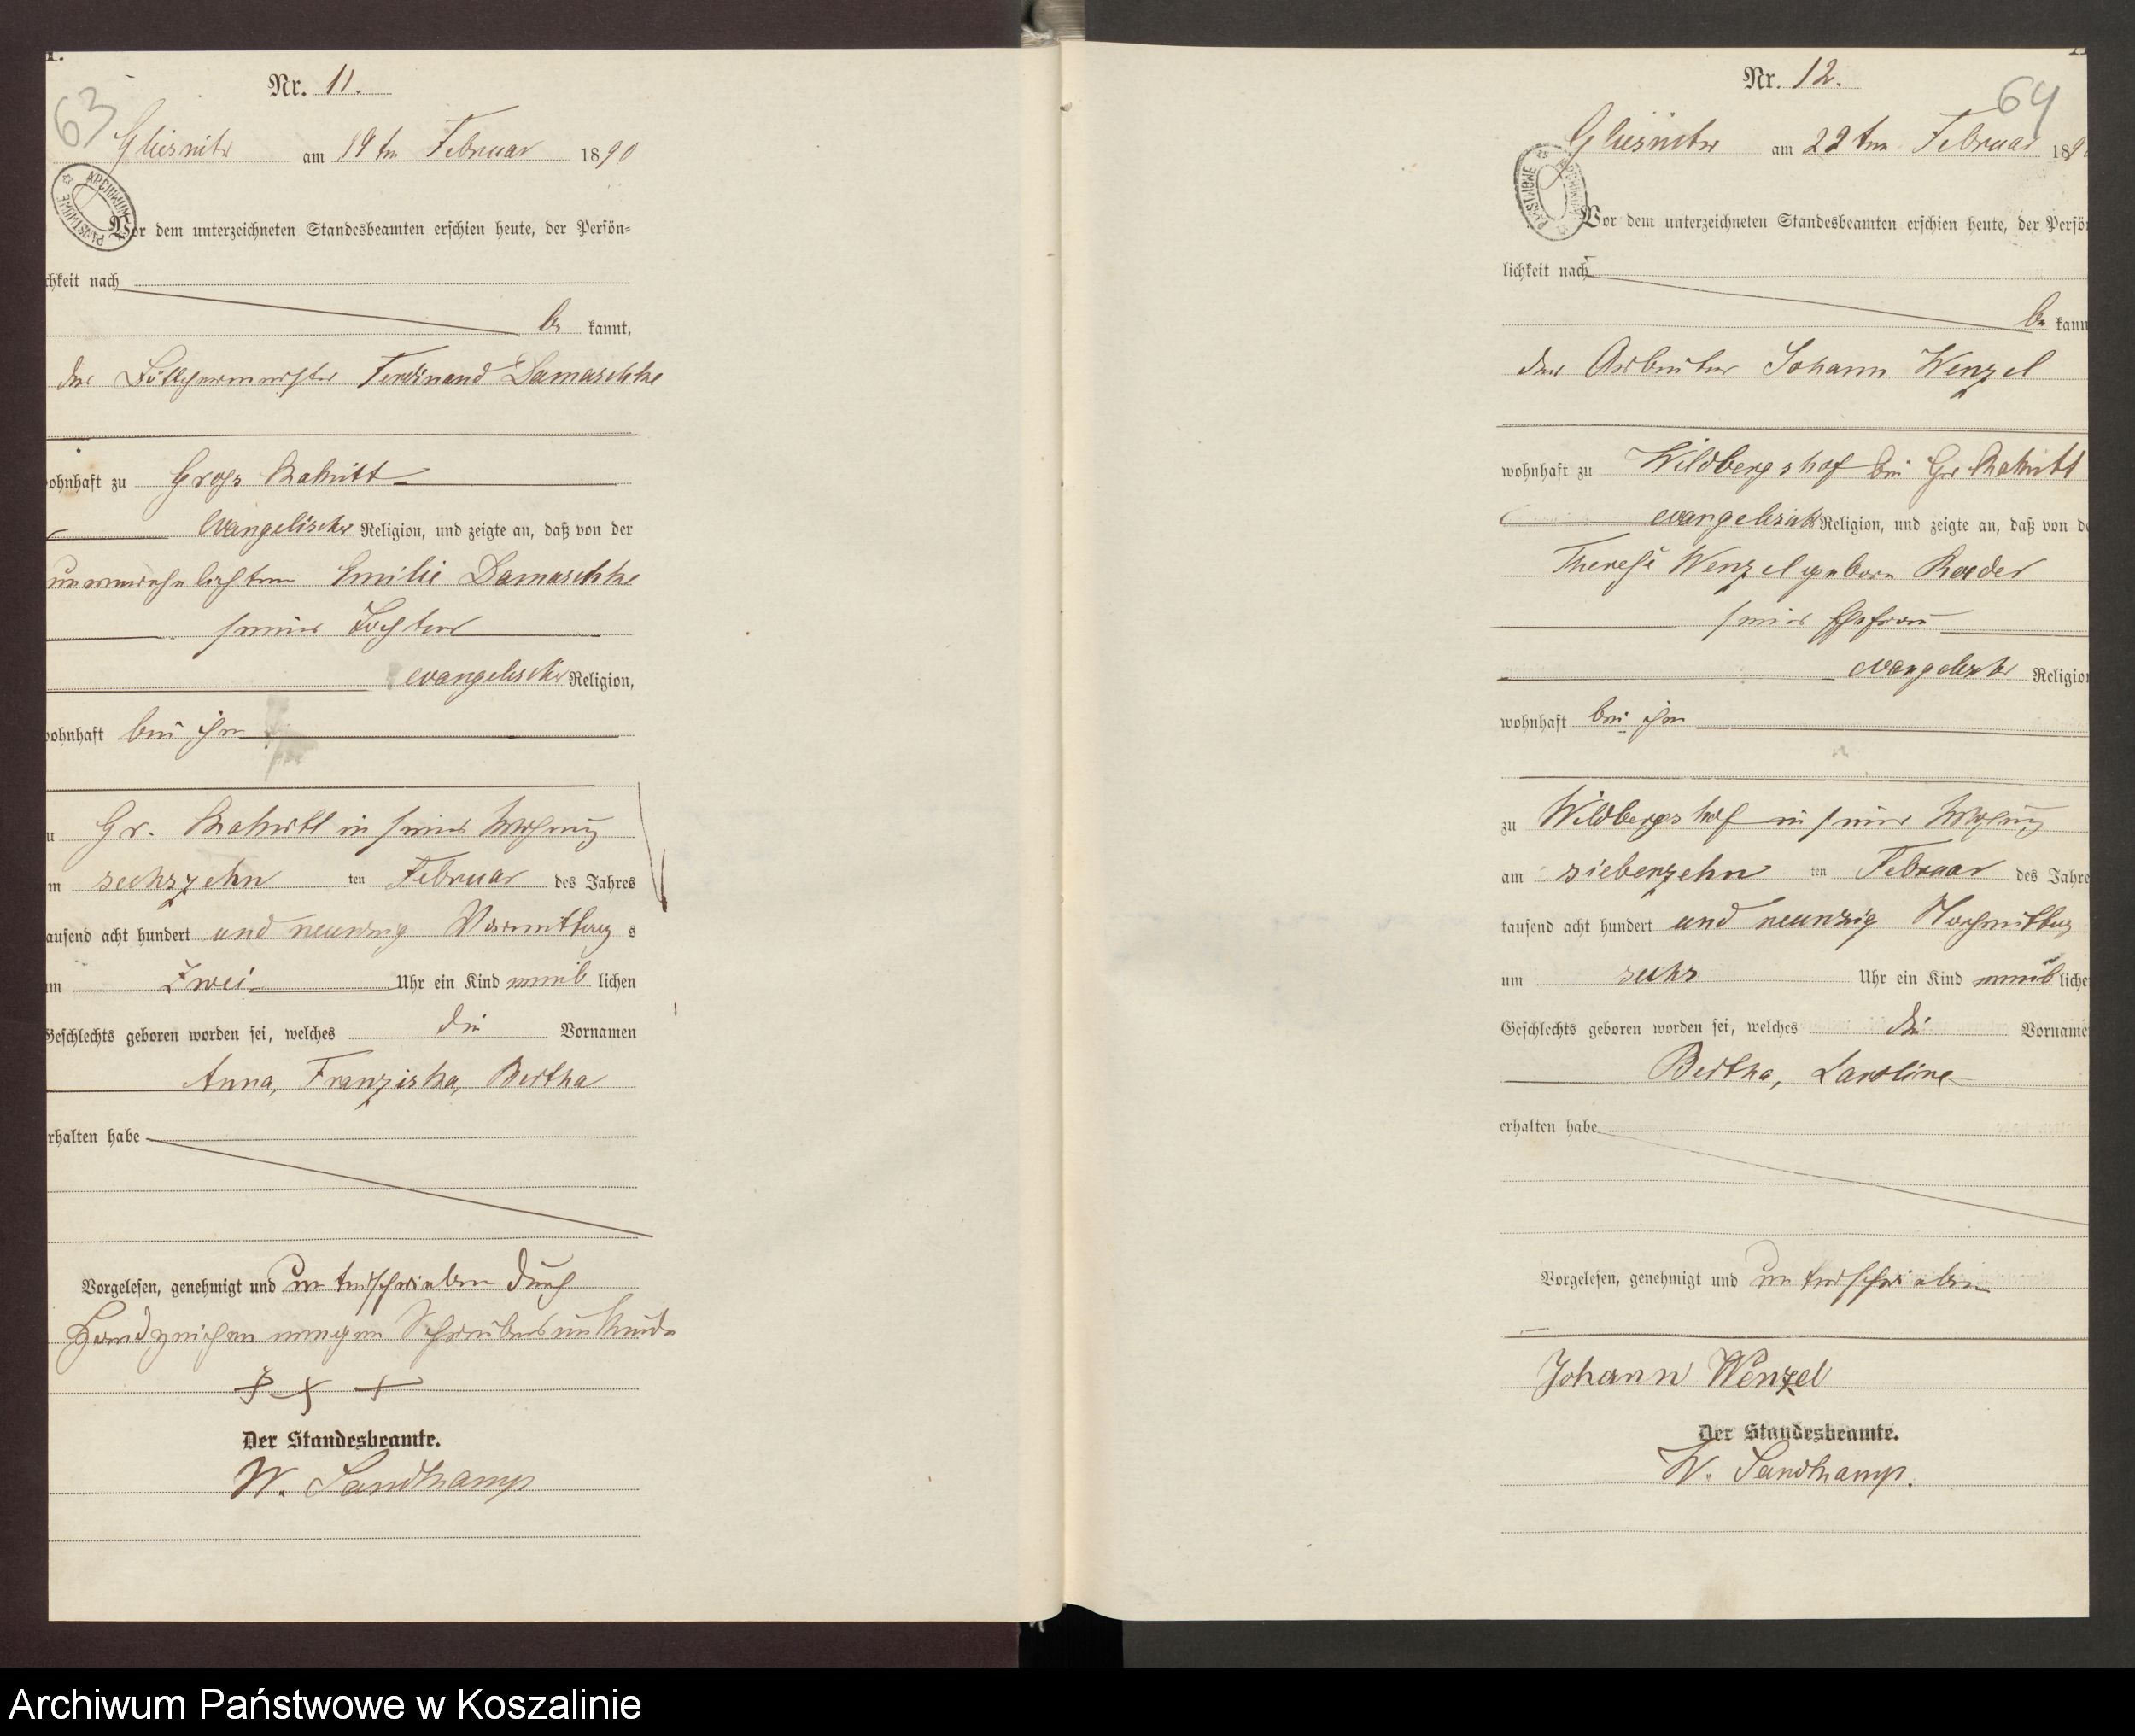 Nr. 11.
63
Gliesnitz am 19 ten Februar 1890
ARCHIWUM PAŃSTWOWE
Vor dem unterzeichneten Standesbeamten erschien heute, der Persön=
chkeit nach
be kannt,
der Ferdinand Damaschke
ohnhaft zu Gross Rakitt
evangelischer Religion, und zeigte an, daß von der
unverehelichten Emilie Damaschke
seiner Tochter
evangelischer Religion,
ohnhaft bei ihm
u Gr. Rakitt in seiner Wohnung
m sechszehn ten Februar des Jahres
ausend acht hundert und neunzig Vormittag s
m zwei Uhr ein Kind weib lichen
Geschlechts geboren worden sei, welches die Vornamen
Anna, Franziska, Bertha
rhalten habe
Vorgelesen, genehmigt und unterschrieben durch
Handzeichen wegen Schreibensunkunde
+ + +
Der Standesbeamte.
W. Sandkamp
Nr. 12.
64
Gliesnitz am 22 ten Februar 189
ARCHIWUM PAŃSTWOWE
Vor dem unterzeichneten Standesbeamten erschien heute, der Persö
lichkeit nach
be kann
der Arbeiter Johann Wenzel
wohnhaft zu Wildbergshof bei Gr Rakitt
evangelischer Religion, und zeigte an, daß von de
Therese Wenzel geborn Roeder
seiner Ehefrau
evangelischer Religion
wohnhaft bei ihm
zu Wildbergshof in seiner Wohnung
am siebenzehn ten Februar des Jahre
tausend acht hundert und neunzig Nachmittag
um sechs Uhr ein Kind weib liche
Geschlechts geboren worden sei, welches die Vorname
Bertha, Karoline
erhalten habe
Vorgelesen, genehmigt und unterschrieben
Johann Wenzel
Der Standesbeamte.
W. Sandkamp.
Archiwum Państwowe w Koszalinie